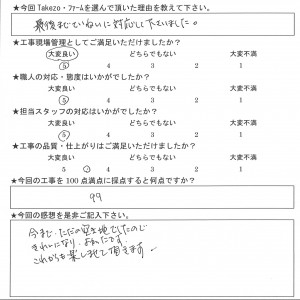 ★今回Takezo・ファームを選んで頂いた理由を教えて下さい。
最後までていねいに対応して下さいました。
★工事現場管理としてご満足いただけましたか？
大変良い どちらでもない 大変不満
5 4 3 2 1
★職人の対応・態度はいかがでしたか？
大変良い どちらでもない 大変不満
5 4 3 2 1
★担当スタッフの対応はいかがでしたか？
大変良い どちらでもない 大変不満
5 4 3 2 1
★工事の品質・仕上がりはご満足いただけましたか？
大変良い どちらでもない 大変不満
5 4 3 2 1
★今回の工事を100点満点に採点すると何点ですか？
99
★今回の感想を是非ご記入下さい。
今まで、ただの空き地でしたので
きれいになり、よかったです。
これからも楽しませて頂きます